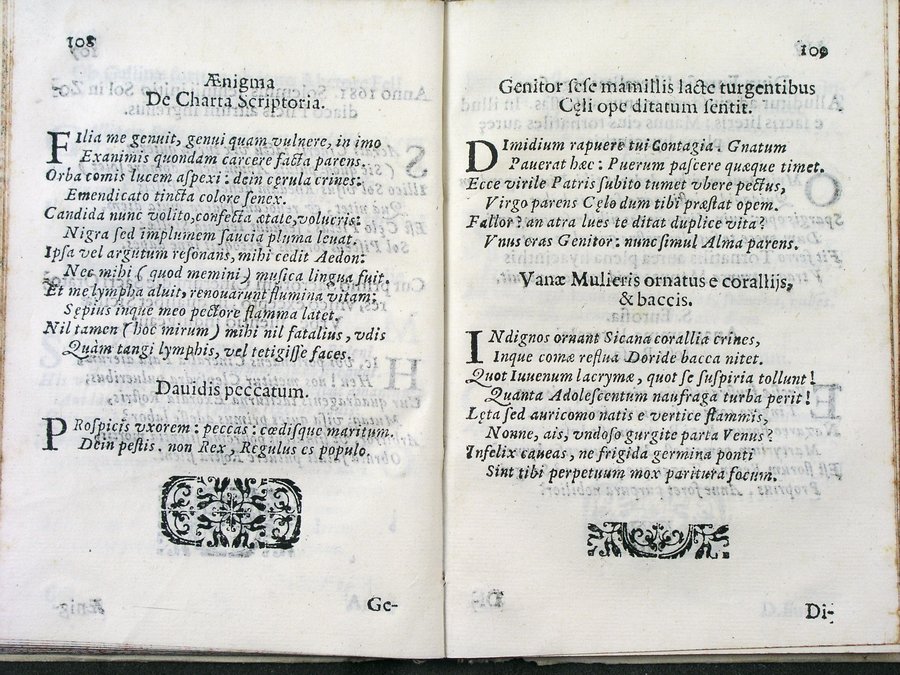 108
Ænigma
De Charta Scriptoria.
FIlia me genuit, genui quam vulnere, in imo
Exanimis quondam carcere facta parens.
Orba comis lucem aspexi: dein cęrula crines:
Emendicato tincta colore senex.
Candida nunc volito, confecta ætate, volucris:
Nigra sed implumem saucia pluma leuat.
Ipsa vel argutum resonans, mihi cedit Aedon:
Nec mihi (quod memini) musica lingua fuit.
Et me lympha aluit, renouarunt flumina vitam:
Sępius inque meo pectore flamma latet.
Nil tamen (hoc mirum) mihi nil fatalius, vdis
Quàm tangi lymphis, vel tetigisse faces.
Dauidis peccatum.
PRospicis vxorem: peccas: cœdisque maritum.
Dein pestis. non Rex, Regulus es populo.
Ge-
109
Genitor sese mamillis lacte turgentibus
Cęli ope ditatum sentit.
DImidium rapuere tui Contagia. Gnatum
Pauerat hæc: Puerum pascere quæque timet.
Ecce virile Patris subito tumet vbere pectus,
Virgo parens Cęlo dum tibi præstat opem.
Fallor? an atra lues te ditat duplice vita?
Vnus eras Genitor: nunc simul Alma parens.
Vanæ Mulieris ornatus e corallijs,
& baccis.
INdignos ornant Sicana corallia crines,
Inque comæ restua Doride bacca nitet.
Quot Iuuenum lacrymæ, quot se suspiria tollunt!
Quanta Adolescentum naufraga turba perit!
Lęta sed auricomo natis e vertice flammis,
Nonne, ais, vndoso gurgite parta Venus?
Infelix caueas, ne frigida germina ponti
Sint tibi perpetuum mox paritura focum.
Di-